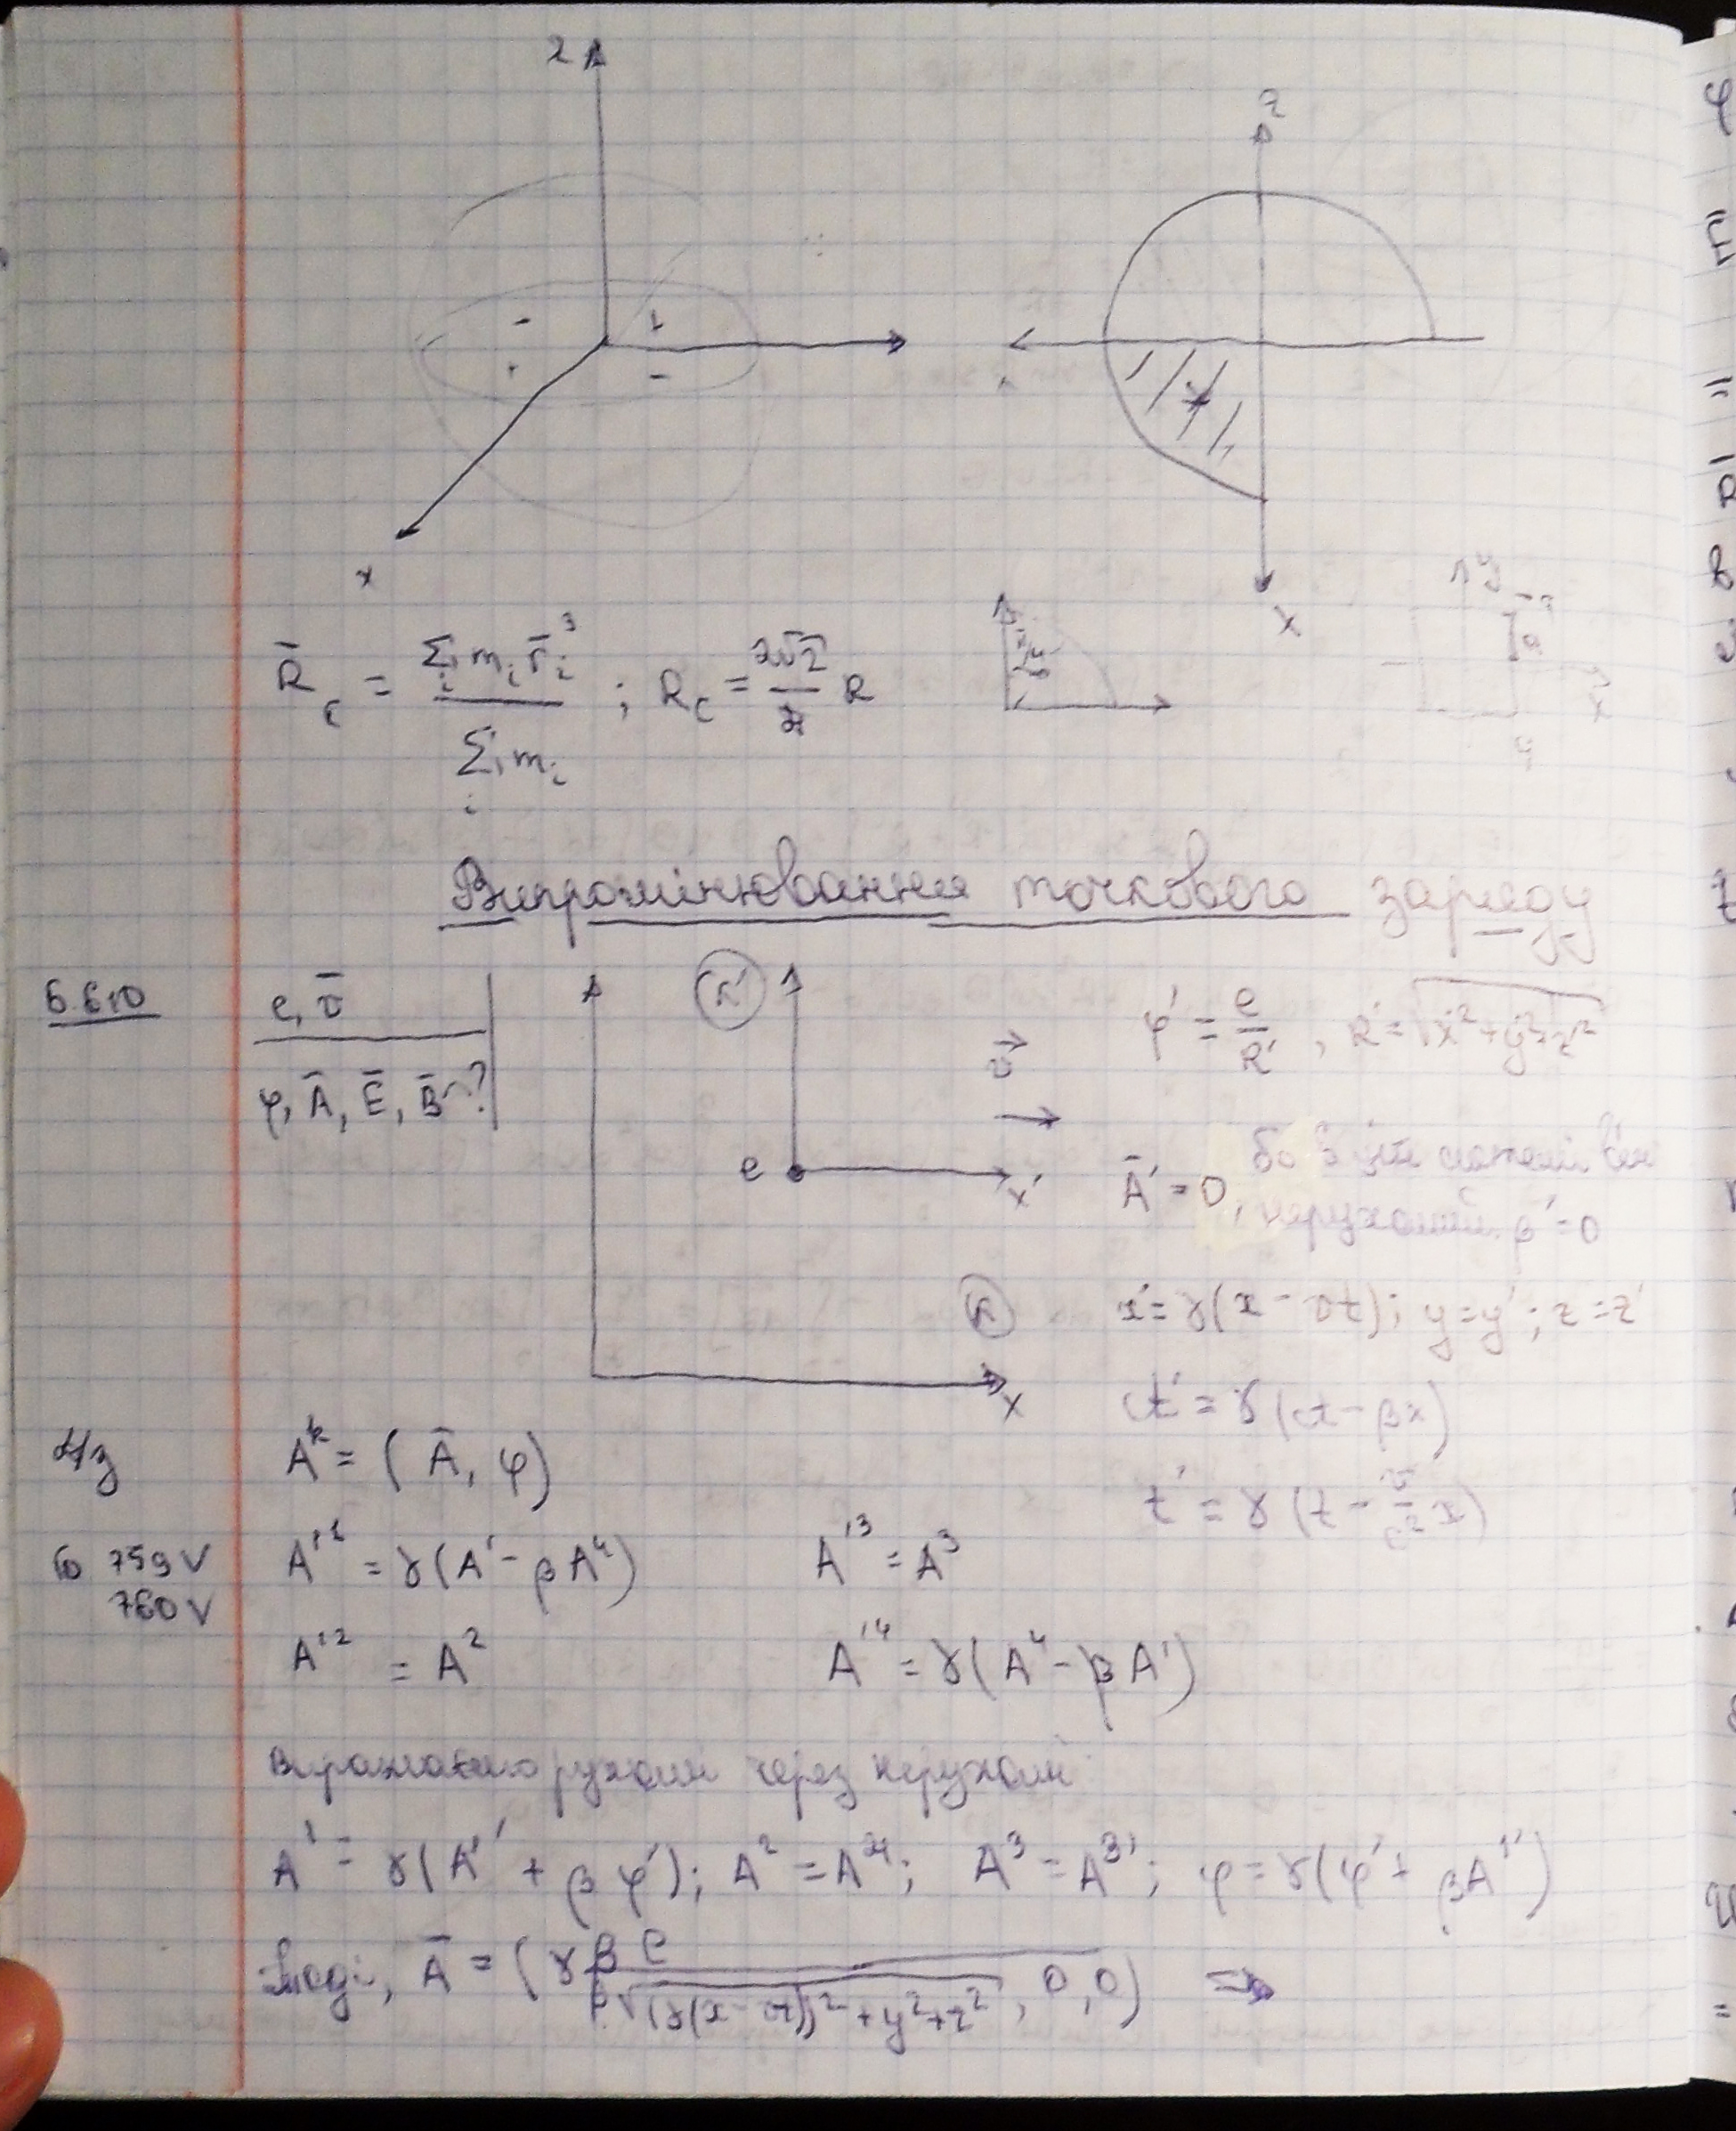 z
z
x
x
R̄_c = Σ_i m_i r̄_i / Σ_i m_i ; R_c = 2√2/π R
Випромінювання точкового заряду
6.610
e, v̄
φ, Ā, Ē, B̄ - ?
K'
e
x'
v⃗
K
x
φ' = e/R', R' = √x'²+y'²+z'²
Ā' = 0, бо в цій системі він
нерухомий. β' = 0
x' = γ(x - vt); y = y'; z = z'
ct' = γ(ct - βx)
t' = γ(t - v/c² x)
д/з
A^k = (Ā, φ)
759 V
760 V
A'¹ = γ(A¹ - βA⁴)
A'³ = A³
A'² = A²
A'⁴ = γ(A⁴ - βA¹)
через
A¹ = γ(A¹' + βφ'); A² = A²'; A³ = A³'; φ = γ(φ' + βA¹')
Тоді, Ā = (γβe / √(γ(x-vt))²+y²+z², 0, 0) ⇒